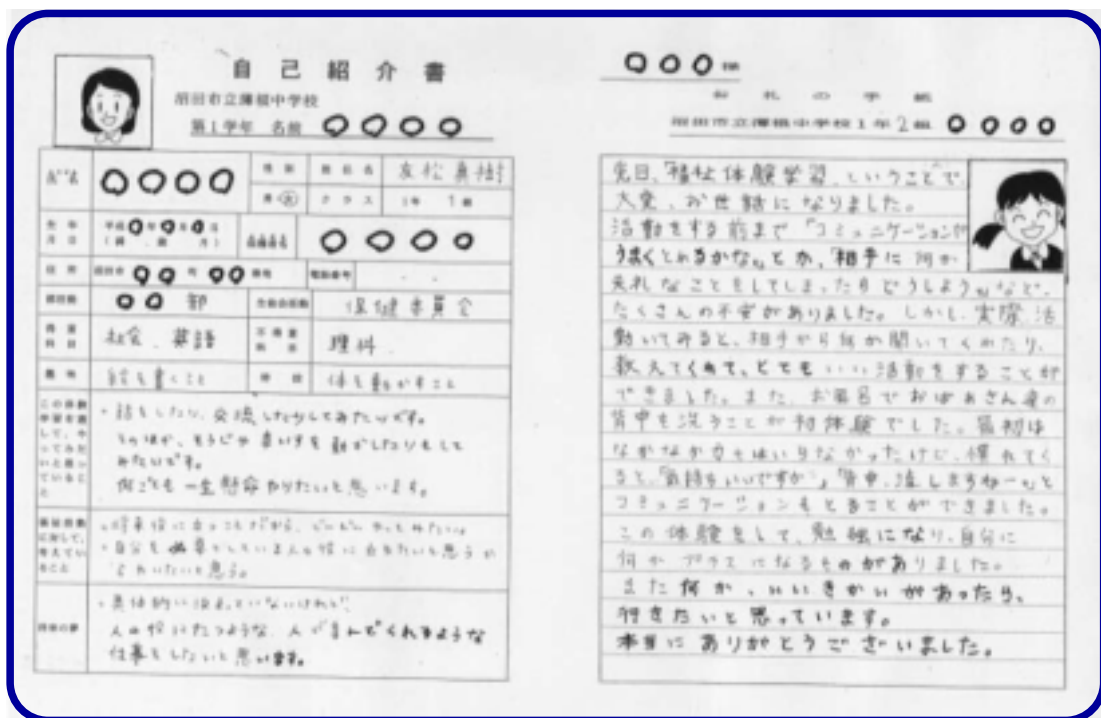 自己紹介書
沼田市立薄根中学校
第1学年 名前 〇〇〇〇
〇〇〇〇
性別
担任名
友松真樹
男・女
クラス
1年 1組
生年月日
平成〇年〇月〇日
〇〇〇〇
住所
沼田市 〇〇町 〇〇番地
電話番号
部活動
〇〇部
生徒会活動
保健委員会
得意科目
社会、英語
不得意科目
理科
趣味
絵を書くこと
特技
体を動かすこと
この体験
学習を通
して、や
ってみた
いと思っ
ているこ
と
・話をしたり、交流したりしてみたいです。
そのほか、そうじや車いすを動かしたりもして
みたいです。
何ごとも一生懸命やりたいと思います。
福祉活動
に対して、
考えてい
ること
・将来役に立つことだから、どんどんやってみたい。
・自分を必要としている人の役に立ちたいと思う
られたいと思う。
将来の夢
・具体的に決まっていないけれど、
人の役にたつような、人が喜んでくれるような
仕事をしたいと思います。
〇〇〇様
お礼の手紙
沼田市立薄根中学校1年2組 〇〇〇〇
先日、「福祉体験学習」ということで、
大変、お世話になりました。
活動をする前まで「コミュニケーションが
うまくとれるかな。」とか、「相手に何か
失礼なことをしてしまったらどうしよう。」など、
たくさんの不安がありました。しかし、実際、活
動してみると、相手から何か聞いてくれたり、
教えてくれて、とてもいい活動をすることが
できました。また、お風呂でおばあさん達の
背中を洗うことが初体験でした。最初は
なかなか力がはいらなかったけど、慣れてく
ると、「気持ちいいですか」「背中、流しますねー。」と
コミュニケーションもとることができました。
この体験をして、勉強になり、自分に
何かプラスになるものがありました。
また何か、いいきかいがあったら、
行きたいと思っています。
本当にありがとうございました。